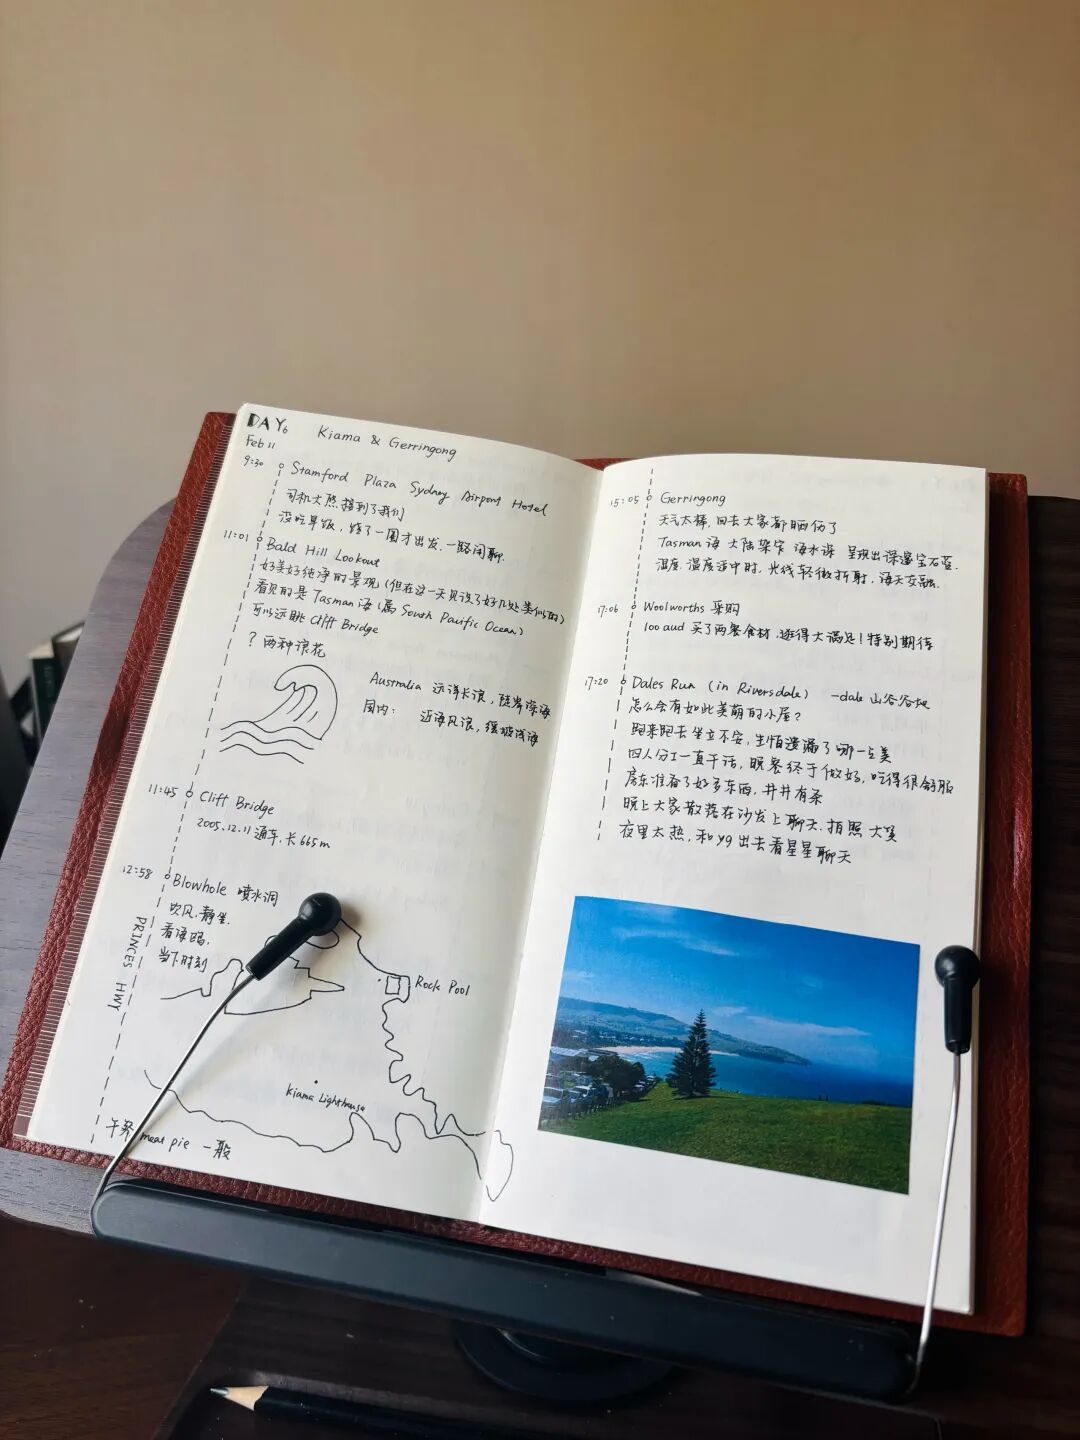 DAY6
Kiama & Gerringong
Feb 11
9:30 Stamford Plaza Sydney Airport Hotel
司机大熊接到了我们
没吃早饭，绕了一圈才出发，一路闲聊.
11:01 Bald Hill Lookout
好美好纯净的景观（但在这一天见识了好几处类似的）
看见的是 Tasman 海（属 South Pacific Ocean）
可以远眺 Cliff Bridge
? 两种浪花
Australia 远洋长浪，陡岸深海
国内： 近海风浪，缓坡浅海
11:45 Cliff Bridge
2005.12.11 通车，长 665m
12:58 Blowhole 喷水洞
吹风.静坐.
看海鸥.
当下时刻
PRINCES HWY
Rock Pool
Kiama Lighthouse
午餐 meat pie 一般
15:05 Gerringong
天气太棒，回去大家都晒伤了
Tasman 海 大陆架窄 海水深 呈现出深邃宝石蓝.
温度.湿度适中时，光线轻微折射，海天交融.
17:06 Woolworths 采购
100 aud 买了两餐食材，逛得大满足！特别期待
17:20 Dales Run (in Riversdale) -dale 山谷谷地
怎么会有如此美萌的小屋？
跑来跑去坐立不安，生怕遗漏了哪一点美
四人分工一直干活，晚餐终于做好，吃得很舒服
房东准备了好多东西，井井有条
晚上大家散落在沙发上聊天.拍照 大笑
夜里太热，和 yg 出去看星星聊天